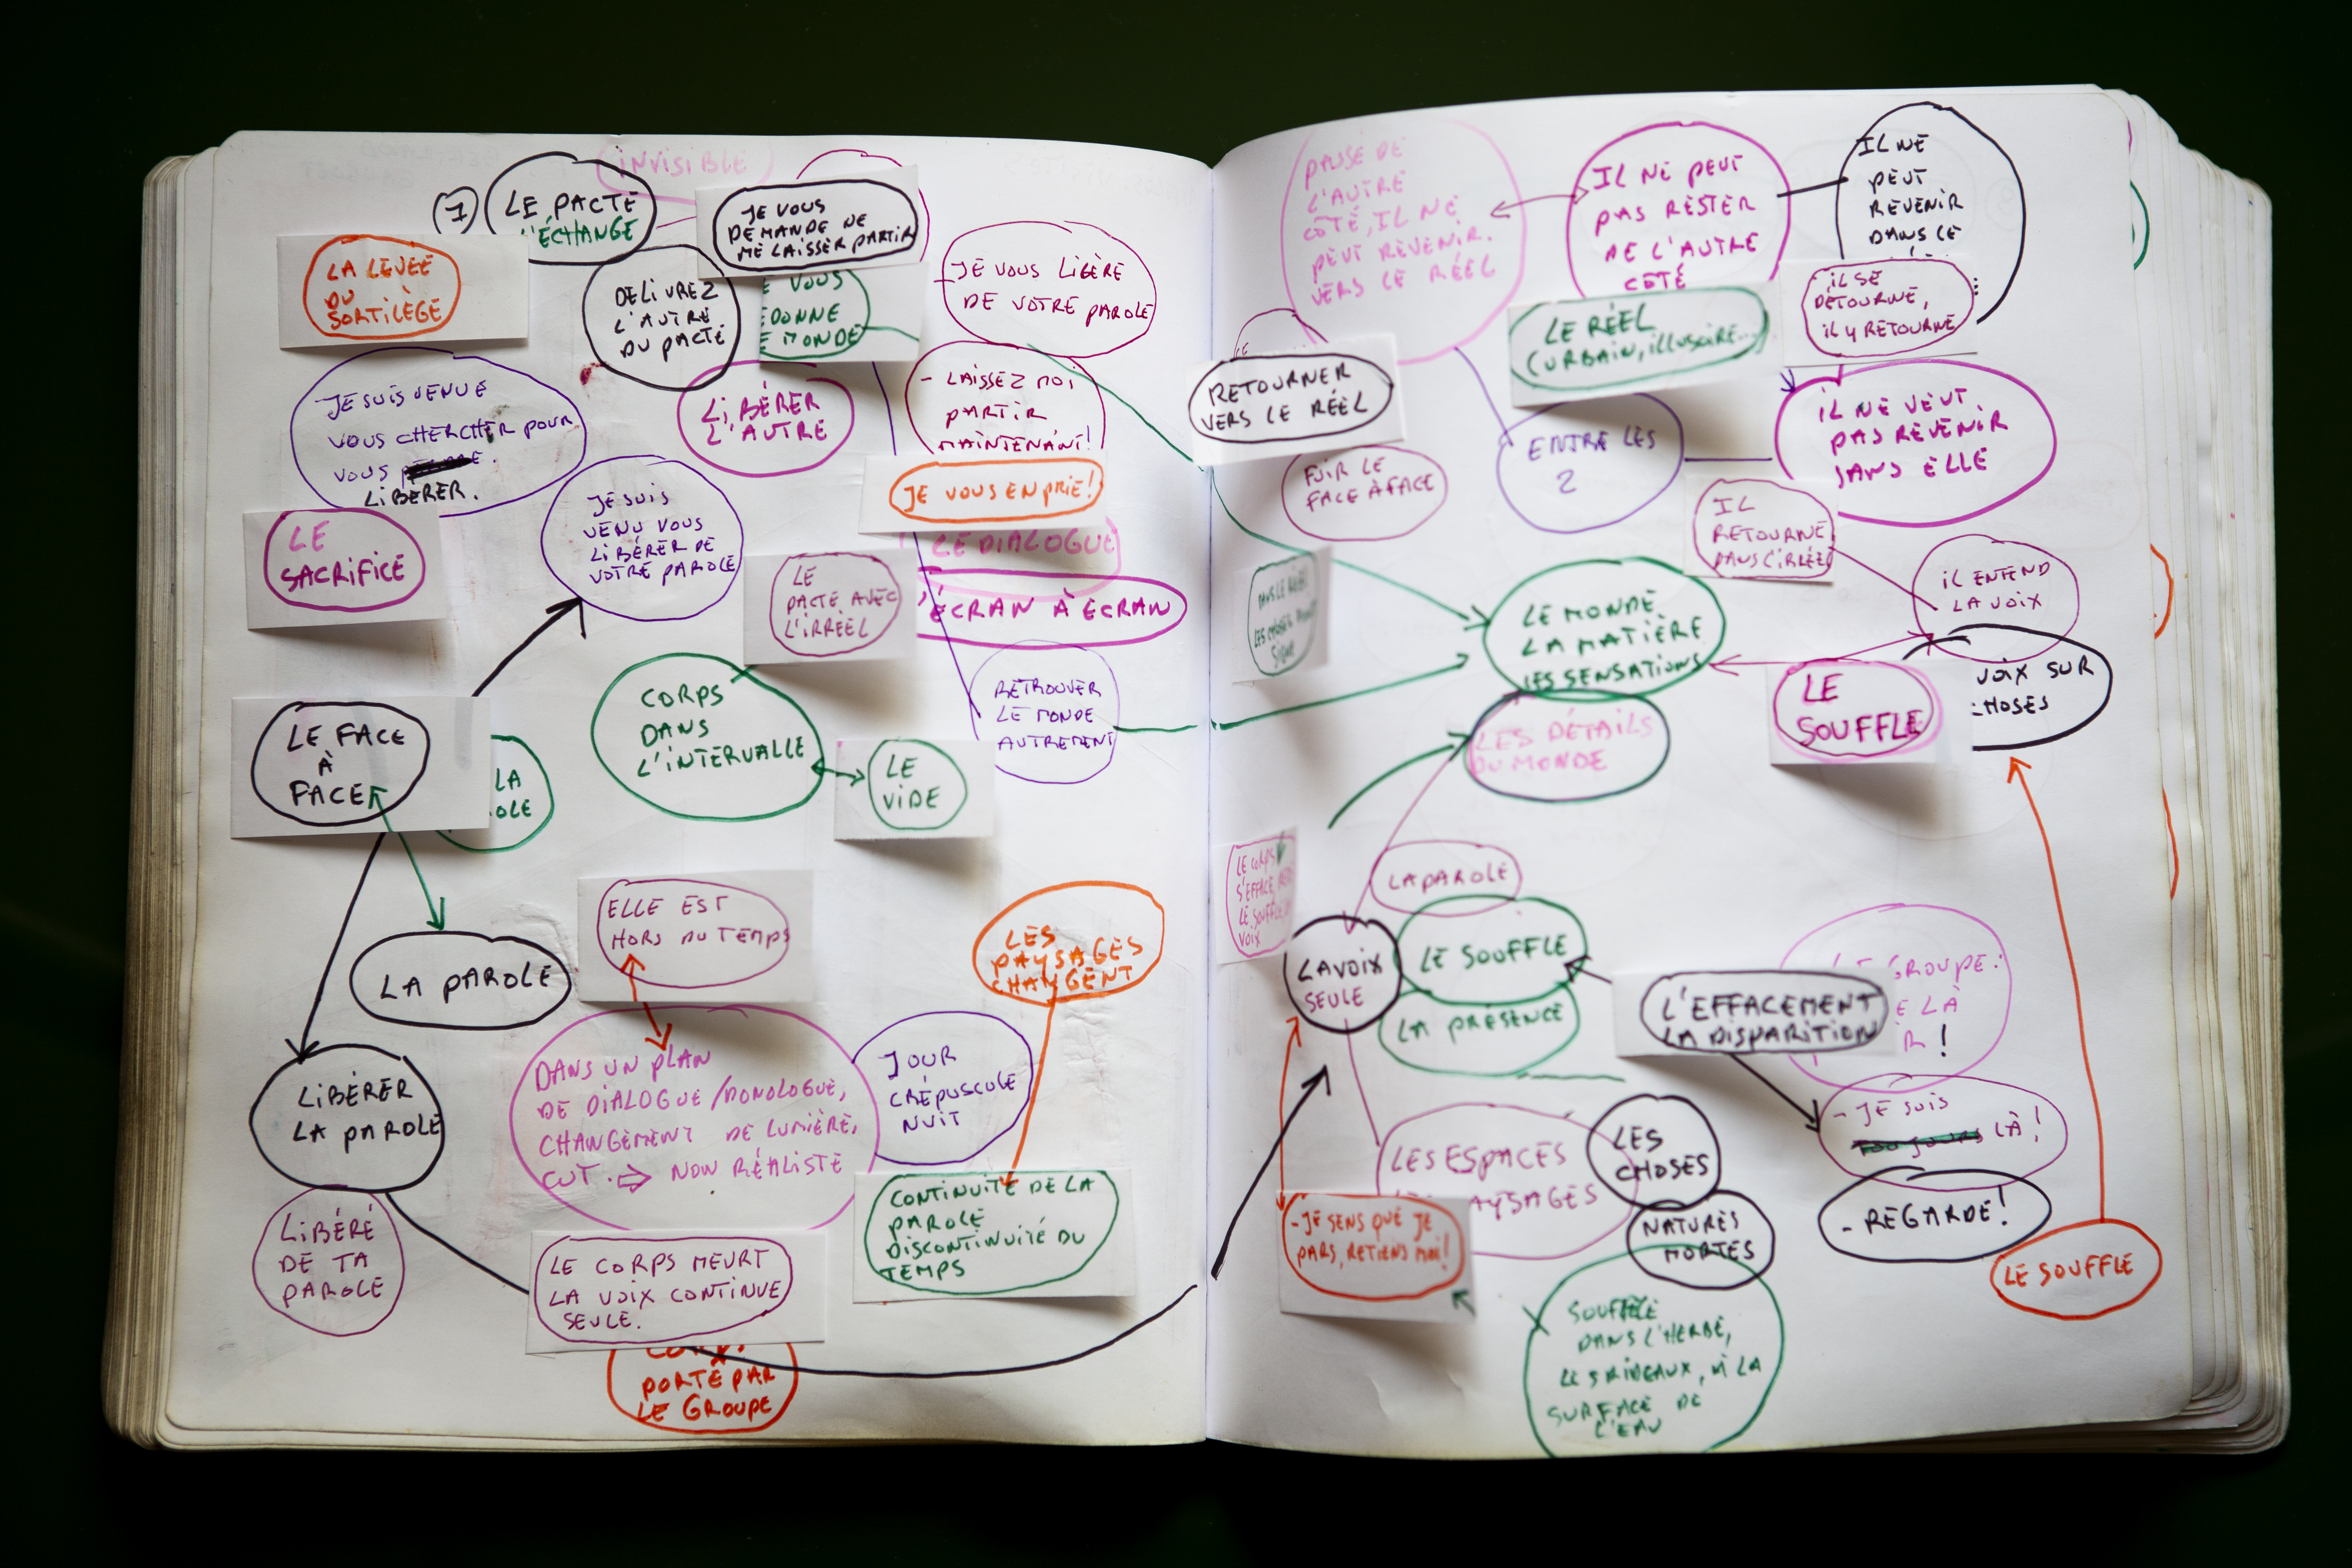 INVISIBLE
7
LE PACTE
L'ÉCHANGE
JE VOUS
DEMANDE DE
ME LAISSER PARTIR
LA LEVÉE
DU
SORTILÈGE
DELIVREZ
L'AUTRE
DU PACTE
VOUS
DONNE
MONDE
JE VOUS LIBÈRE
DE VOTRE PAROLE
JE SUIS VENUE
VOUS CHERCHER POUR
VOUS
LIBERER.
LIBÉRER
L'AUTRE
- LAISSEZ MOI
PARTIR
MAINTENANT!
JE VOUS EN PRIE!
LE
SACRIFICE
JE SUIS
VENU VOUS
LIBÉRER DE
VOTRE PAROLE
LE DIALOGUE
ÉCRAN À ECRAN
LE
PACTE AVEC
L'IRRÉEL
RETROUVER
LE MONDE
AUTREMENT
CORPS
DANS
L'INTERVALLE
LE
VIDE
LE FACE
À
FACE
LA
OLE
LA PAROLE
ELLE EST
HORS DU TEMPS
LES
PAYSAGES
CHANGENT
LIBÉRER
LA PAROLE
DANS UN PLAN
DE DIALOGUE/MONOLOGUE,
CHANGEMENT DE LUMIÈRE,
CUT. ⇨ NON RÉALISTE
JOUR
CRÉPUSCULE
NUIT
CONTINUITÉ DE LA
PAROLE
DISCONTINUITÉ DU
TEMPS
LIBÉRÉ
DE TA
PAROLE
LE CORPS MEURT
LA VOIX CONTINUE
SEULE.
PORTÉ PAR
LE GROUPE
PASSÉ DE
L'AUTRE
CÔTÉ, IL NE
PEUT REVENIR.
VERS LE RÉEL
IL NE PEUT
PAS RESTER
DE L'AUTRE
CÔTÉ
IL NE
PEUT
REVENIR
DANS LE
IL SE
DÉTOURNE,
IL Y RETOURNE
LE RÉEL
(URBAIN, ILLUSOIRE...
RETOURNER
VERS LE RÉEL
FUIR LE
FACE À FACE
ENTRE LES
2
IL NE VEUT
PAS REVENIR
SANS ELLE
IL
RETOURNE
DANS L'IRRÉEL
IL ENTEND
LA VOIX
DANS LE RÉEL
LES CHOSES
SIGNE
LE MONDE
LA MATIÈRE
LES SENSATIONS
LE
SOUFFLE
VOIX SUR
CHOSES
LES DÉTAILS
DU MONDE
LE CORPS
S'EFFACE,
LE SOUFFLE
VOIX
LA PAROLE
LA VOIX
SEULE
LE SOUFFLE
LA PRÉSENCE
L'EFFACEMENT
LA DISPARITION
GROUPE:
E LÀ
R!
- JE SUIS
TOUJOURS LÀ!
- REGARDE!
LES ESPACES
PAYSAGES
LES
CHOSES
NATURES
MORTES
- JE SENS QUE JE
PARS, RETIENS MOI!
LE SOUFFLE
SOUFFLE
DANS L'HERBE,
LES RIDEAUX, À LA
SURFACE DE
L'EAU